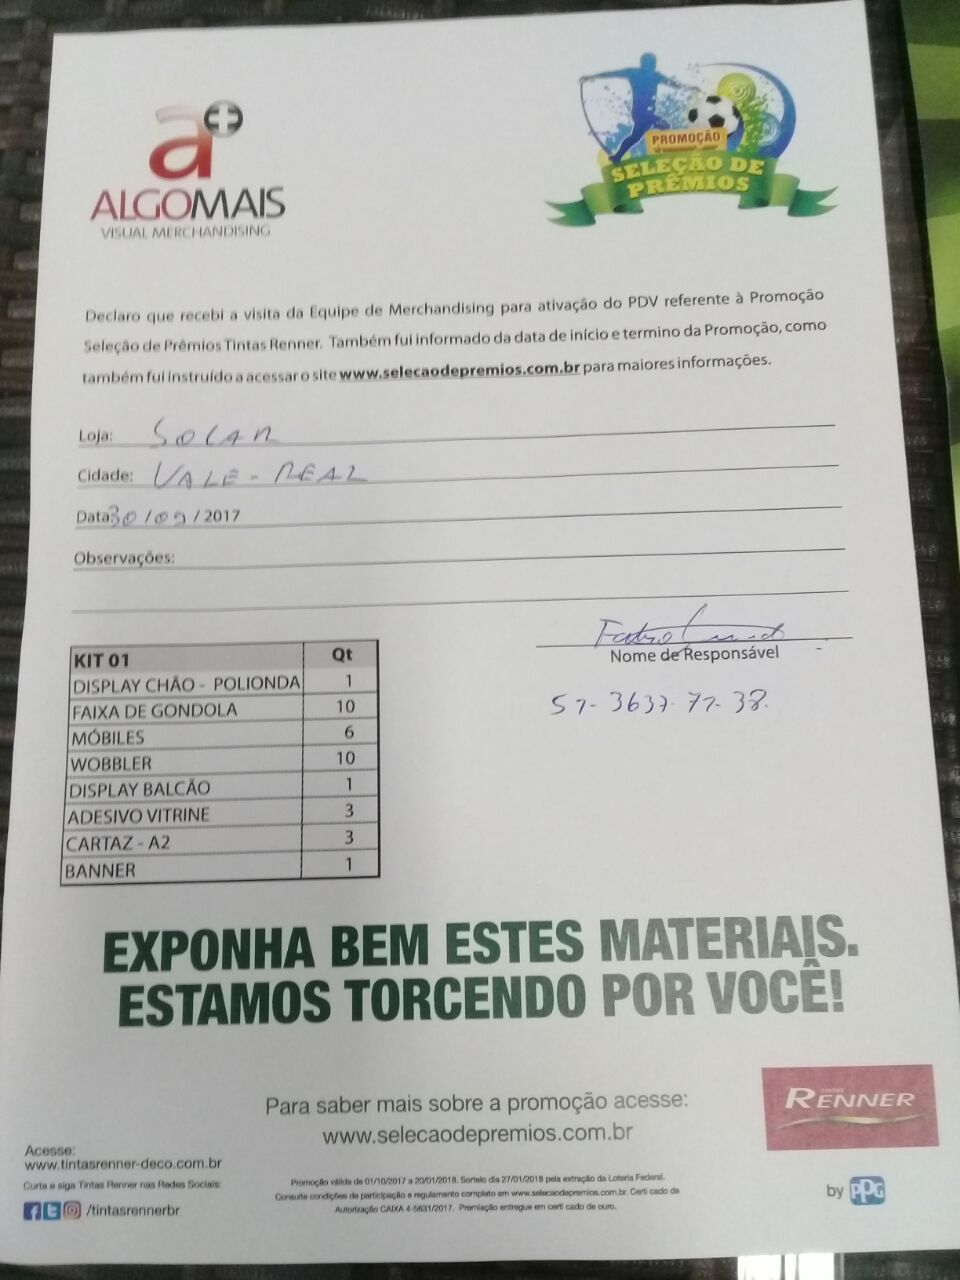 a+
ALGOMAIS
VISUAL MERCHANDISING
PROMOÇÃO
SELEÇÃO DE
PRÊMIOS
Declaro que recebi a visita da Equipe de Merchandising para ativação do PDV referente à Promoção
Seleção de Prêmios Tintas Renner. Também fui informado da data de início e termino da Promoção, como
também fui instruído a acessar o site www.selecaodepremios.com.br para maiores informações.
Loja: SOLAR
Cidade: VALE - REAL
Data: 30 / 09 / 2017
Observações:
Nome de Responsável
51- 3637- 71- 38.
KIT 01 Qt
DISPLAY CHÃO - POLIONDA 1
FAIXA DE GONDOLA 10
MÓBILES 6
WOBBLER 10
DISPLAY BALCÃO 1
ADESIVO VITRINE 3
CARTAZ - A2 3
BANNER 1
EXPONHA BEM ESTES MATERIAIS.
ESTAMOS TORCENDO POR VOCÊ!
Para saber mais sobre a promoção acesse:
www.selecaodepremios.com.br
TINTAS
RENNER
Acesse:
www.tintasrenner-deco.com.br
Curta e siga Tintas Renner nas Redes Sociais:
/tintasrennerbr
Promoção válida de 01/10/2017 a 20/01/2018. Sorteio dia 27/01/2018 pela extração da Loteria Federal.
Consulte condições de participação e regulamento completo em www.selecaodepremios.com.br. Certi cado de
Autorização CAIXA 4-5631/2017. Premiação entregue em certi cado de ouro.
by PPG